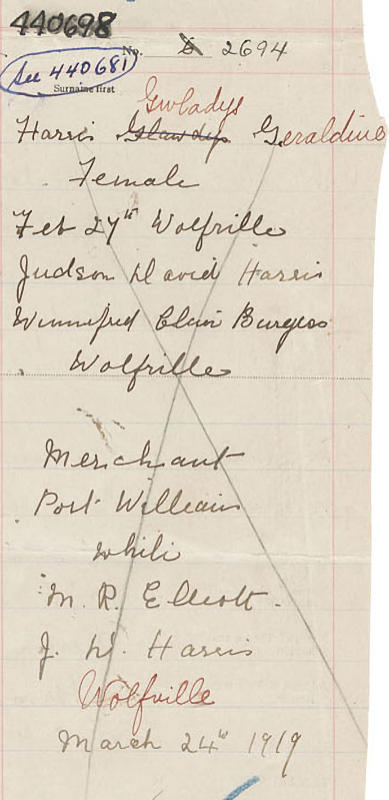 440698
No. 6 2694
See 440681
Surname first
Gwladys
Harris Glawdys Geraldine
Female
Feb 27th Wolfville
Judson David Harris
Winnifred Clair Burgess
Wolfville
Merchant
Port William
White
M. R. Elliott.
J. D. Harris
Wolfville
March 24th 1919